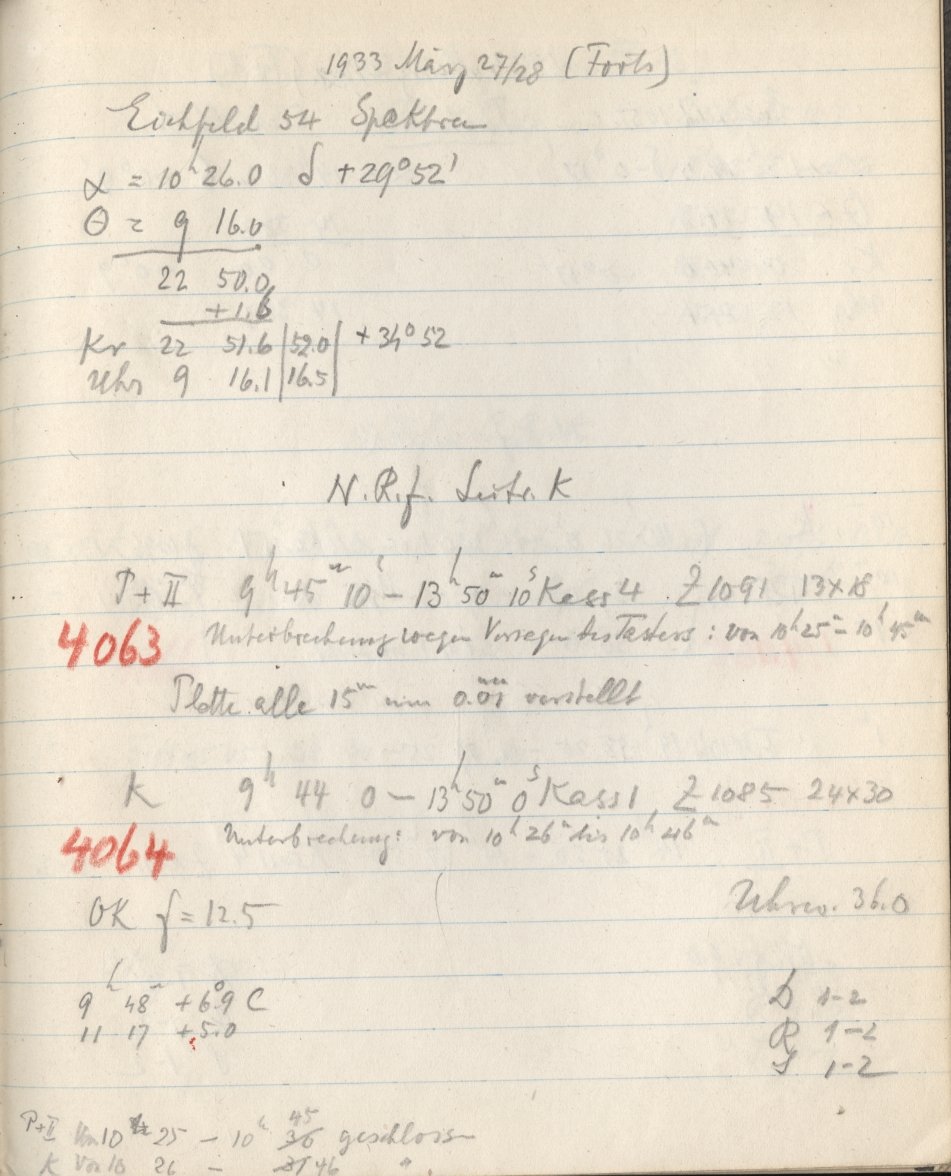 1933 März 27/28 (Forts)
Eichfeld 54 Spektren
α = 10ʰ 26.0 δ +29° 52'
Θ = 9 16.0
22 50.0
+1.6
Kr 22 51.6 | 52.0 | +34° 52
Uhr 9 16.1 | 16.5 |
N.R.f. Leitr. K
P+II 9ʰ 45ᵐ 10ˢ – 13ʰ 50ᵐ 10ˢ Kass 4 Z 1091 13x18
4063 Unterbrechung wegen Versagen des Tasters : von 10ʰ 25ᵐ – 10ʰ 45ᵐ
Platte alle 15ᵐ um 0.01 verstellt
K 9ʰ 44 0 – 13ʰ 50ᵐ 0ˢ Kass 1 Z 1085 24x30
4064 Unterbrechung: von 10ʰ 26ᵐ bis 10ʰ 46ᵐ
OK f = 12.5 Uhrw. 36.0
9ʰ 48ᵐ +6°.9 C D 1-2
11 17 +5.0 R 1-2
S 1-2
P+II Von 10 25 – 10ʰ 45 geschlossen
K Von 10 26 – 46 "